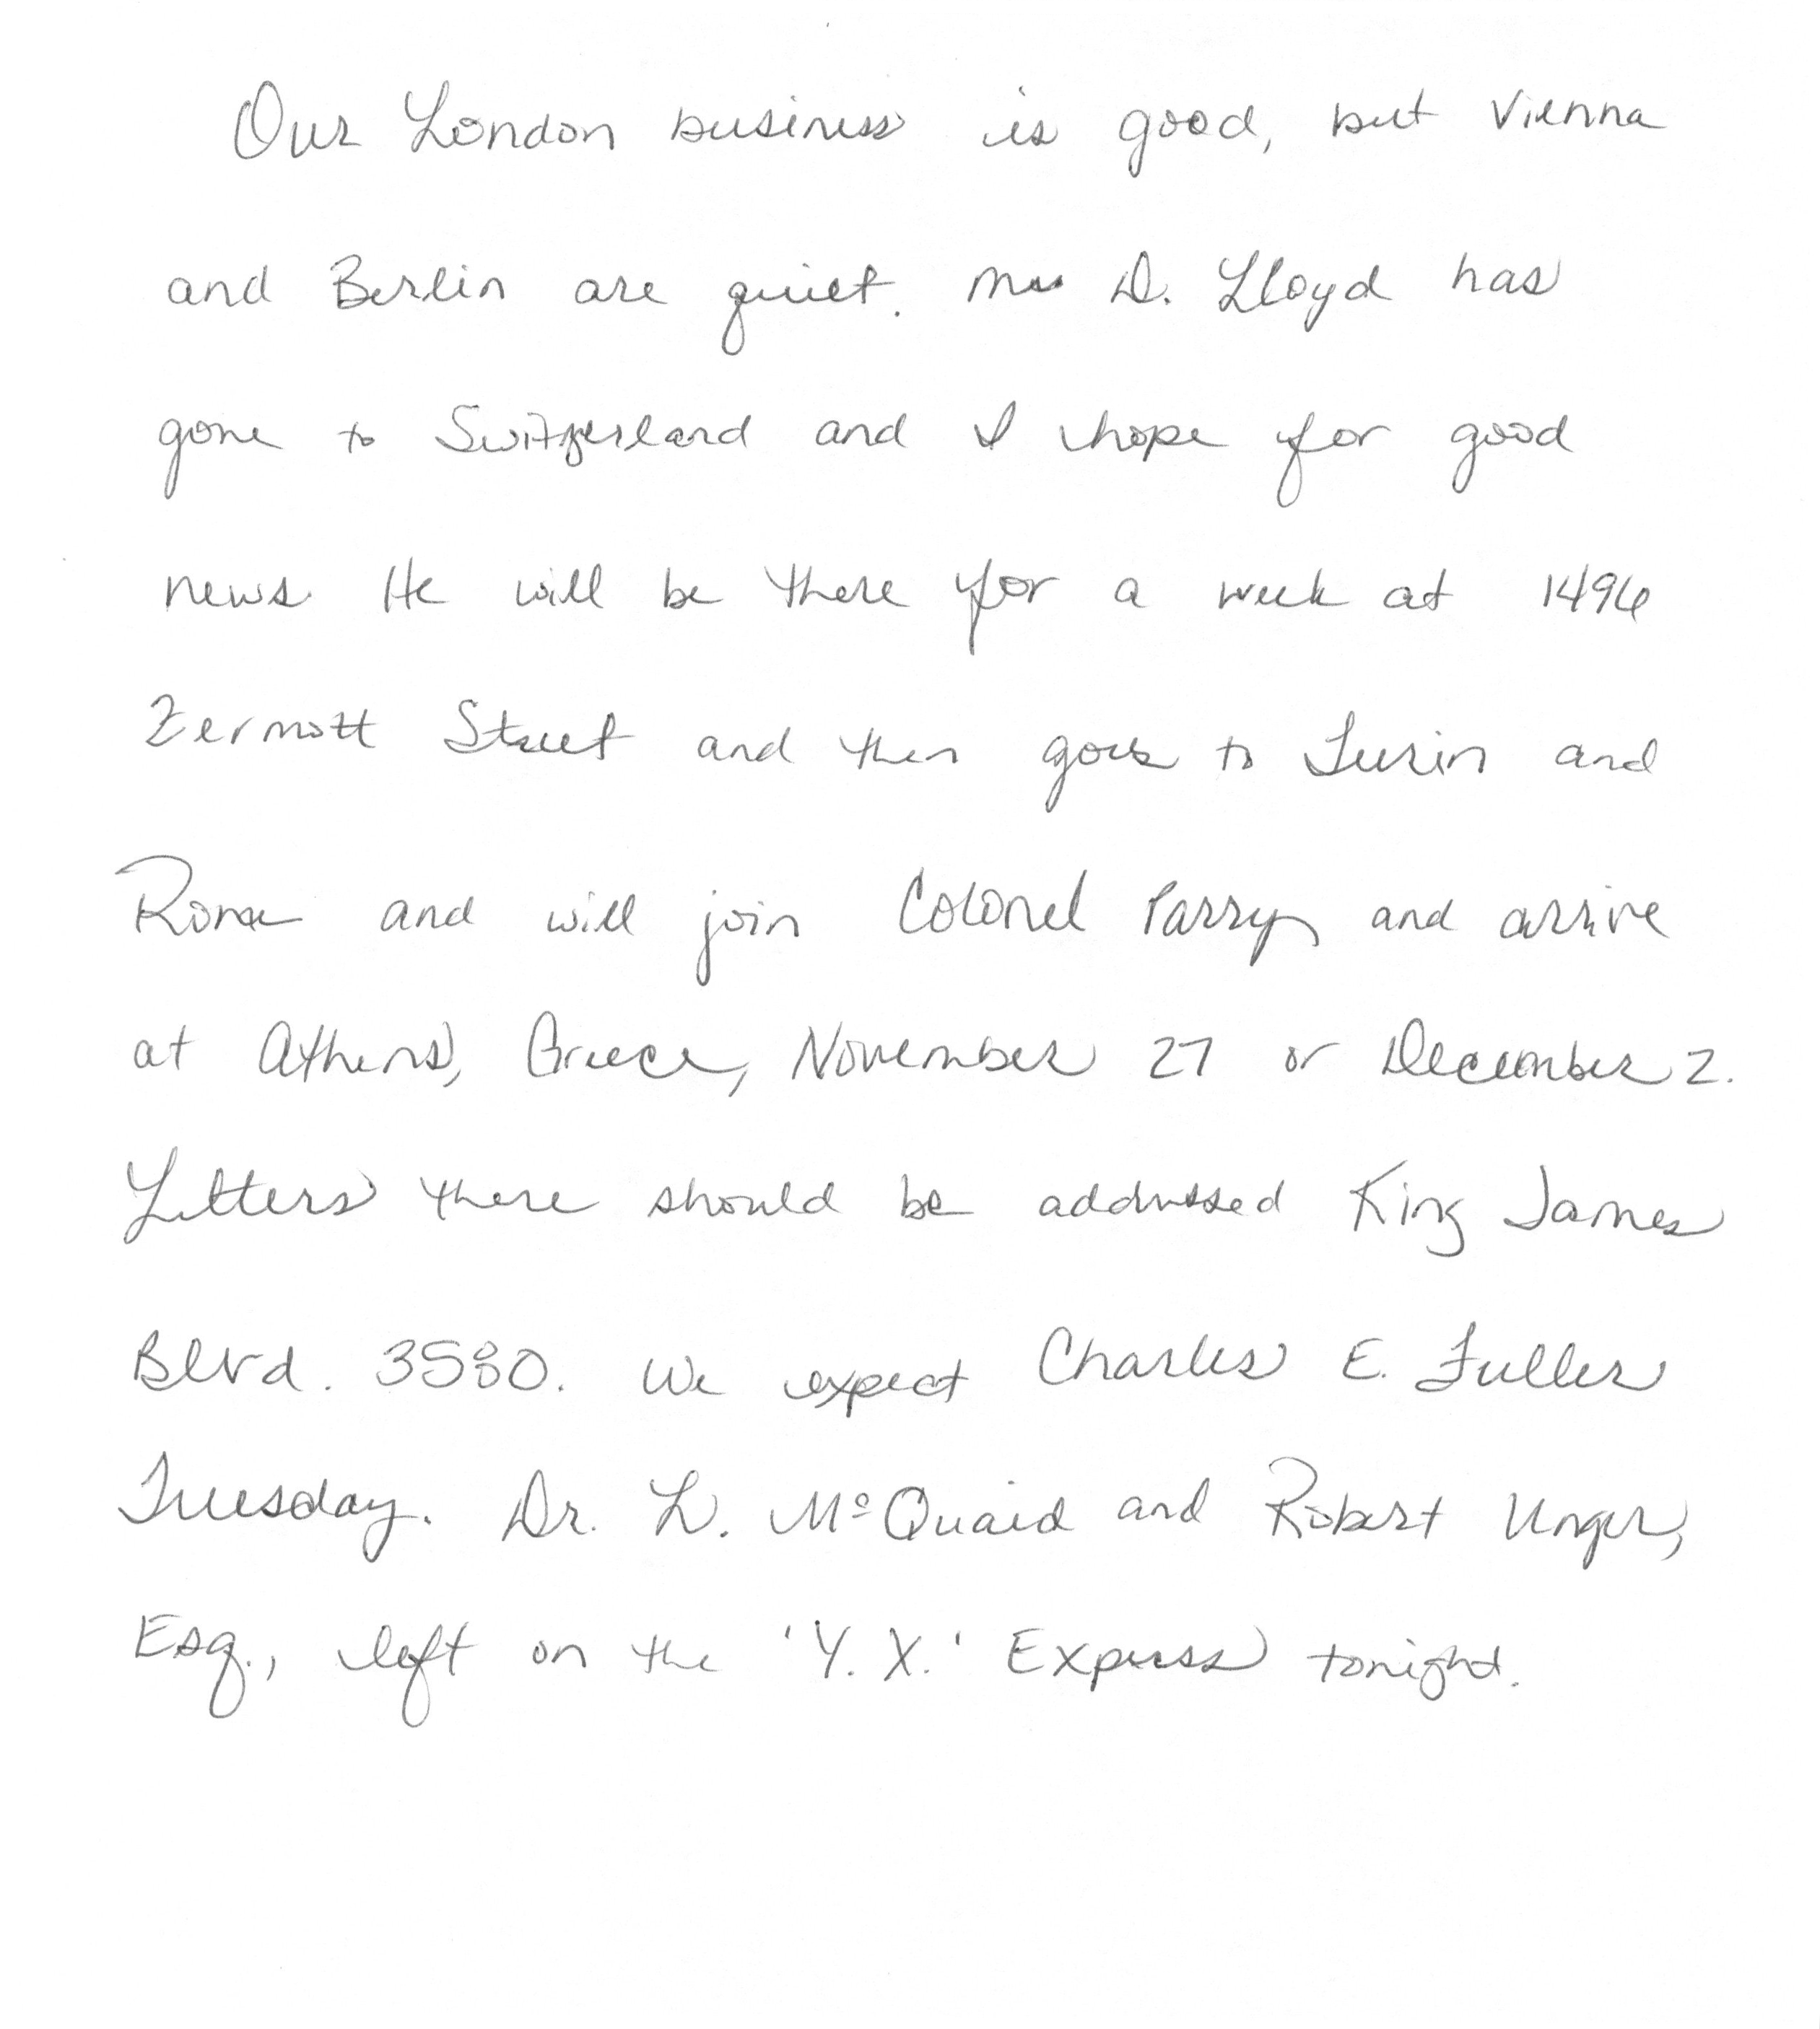 Our London business is good, but Vienna
and Berlin are quiet. Mr. D. Lloyd has
gone to Switzerland and I hope for good
news. He will be there for a week at 1496
Zermott Street and then goes to Turin and
Rome and will join Colonel Parry and arrive
at Athens, Greece, November 27 or December 2.
Letters there should be addressed King James
Blvd. 3580. We expect Charles E. Fuller
Tuesday. Dr. L. McQuaid and Robert Unger,
Esq., left on the 'Y. X.' Express tonight.